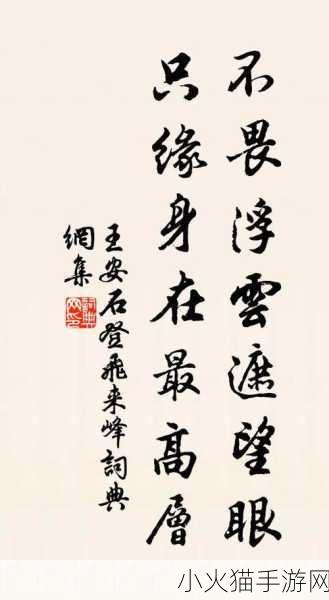 不畏浮雲遮望眼
只緣身在最高層
王安石登飛来峰詞典
網集
詞典
网印
小火猫手游网